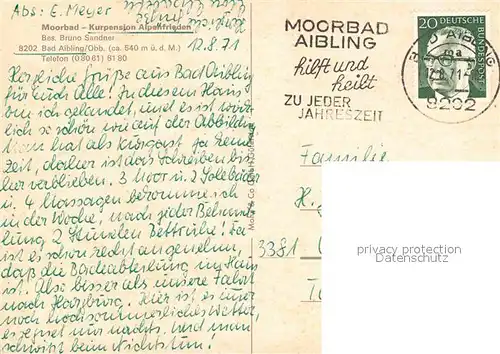 Abs: E. Meyer
Moorbad - Kurpension Alpenfrieden
Bes. Bruno Sandner
8202 Bad Aibling/Obb. (ca. 540 m ü. d. M.)
Telefon (08061) 8180
12.8.71
Herzliche Grüße aus Bad Aibling
für Euch Alle! In diesem Haus
bin ich gelandet, und es ist wirk-
lich so schön wie auf der Abbildung
Man hat als Kurgast ja keine
Zeit, daher ist das Schreiben bis-
her verblieben. 3 Moor u. 2 Solebäder
u. 4 Massagen bekomme ich
in der Woche! nach jeder Behand-
lung 2 Stunden Bettruhe! Da
ist es schon recht angenehm,
daß die Badeabteilung im Haus
ist. Also bisher als unsere Fahrt
nach Harzburg. Hier ist es immer
noch hochsommerliches Wetter,
es regnet nur nachts. Und man
schwitzt beim Nichtstun!
MOORBAD
AIBLING
hilft und
heilt
ZU JEDER
JAHRESZEIT
BAD AIBLING
a
12.8.71
8202
20
DEUTSCHE
BUNDESPOST
Familie
H.
3381
privacy protection
Datenschutz